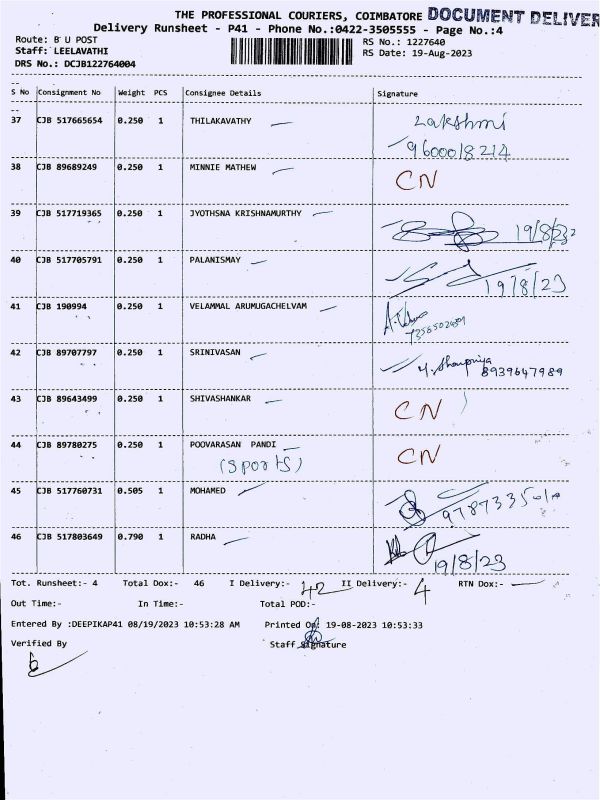 THE PROFESSIONAL COURIERS, COIMBATORE DOCUMENT DELIVER
Delivery Runsheet - P41 - Phone No.:0422-3505555 - Page No.:4
Route: B U POST RS No.: 1227640
Staff: LEELAVATHI RS Date: 19-Aug-2023
DRS No.: DCJB122764004
S No Consignment No Weight PCS Consignee Details Signature
37 CJB 517665654 0.250 1 THILAKAVATHY Lakshmi
9600018214
38 CJB 89689249 0.250 1 MINNIE MATHEW CN
39 CJB 517719365 0.250 1 JYOTHSNA KRISHNAMURTHY 19/8/23
40 CJB 517705791 0.250 1 PALANISMAY 19/8/23
41 CJB 190994 0.250 1 VELAMMAL ARUMUGACHELVAM
42 CJB 89707797 0.250 1 SRINIVASAN 8939647989
43 CJB 89643499 0.250 1 SHIVASHANKAR CN
44 CJB 89780275 0.250 1 POOVARASAN PANDI CN
(Sports)
45 CJB 517760731 0.505 1 MOHAMED
46 CJB 517803649 0.790 1 RADHA 19/8/23
Tot. Runsheet:- 4 Total Dox:- 46 I Delivery:- 42 II Delivery:- 4 RTN Dox:-
Out Time:- In Time:- Total POD:-
Entered By :DEEPIKAP41 08/19/2023 10:53:28 AM Printed On: 19-08-2023 10:53:33
Verified By Staff Signature